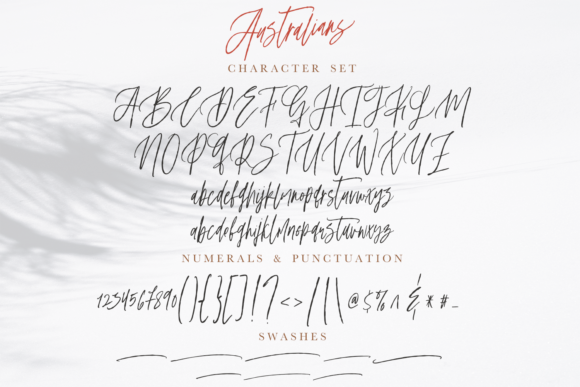 Australians
CHARACTER SET
ABCDEFGHIJKLM
NOPQRSTUVWXYZ
abcdefghijklmnopqrstuvwxyz
abcdefghijklmnopqrstuvwxyz
NUMERALS & PUNCTUATION
1234567890(){}[]!?<>/|\@$%^&*#_
SWASHES